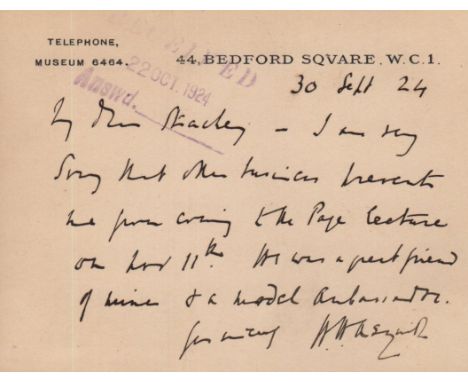 TELEPHONE,
MUSEUM 6464.
44, BEDFORD SQVARE, W.C.1.
RECEIVED
22 OCT. 1924
Answd.
30 Sept 24
My dear Strachey – I am very
sorry that other business prevents
me from coming to the Page Lecture
on Nov 11th. He was a great friend
of mine & a model Ambassador.
Yrs sincerely H H Asquith